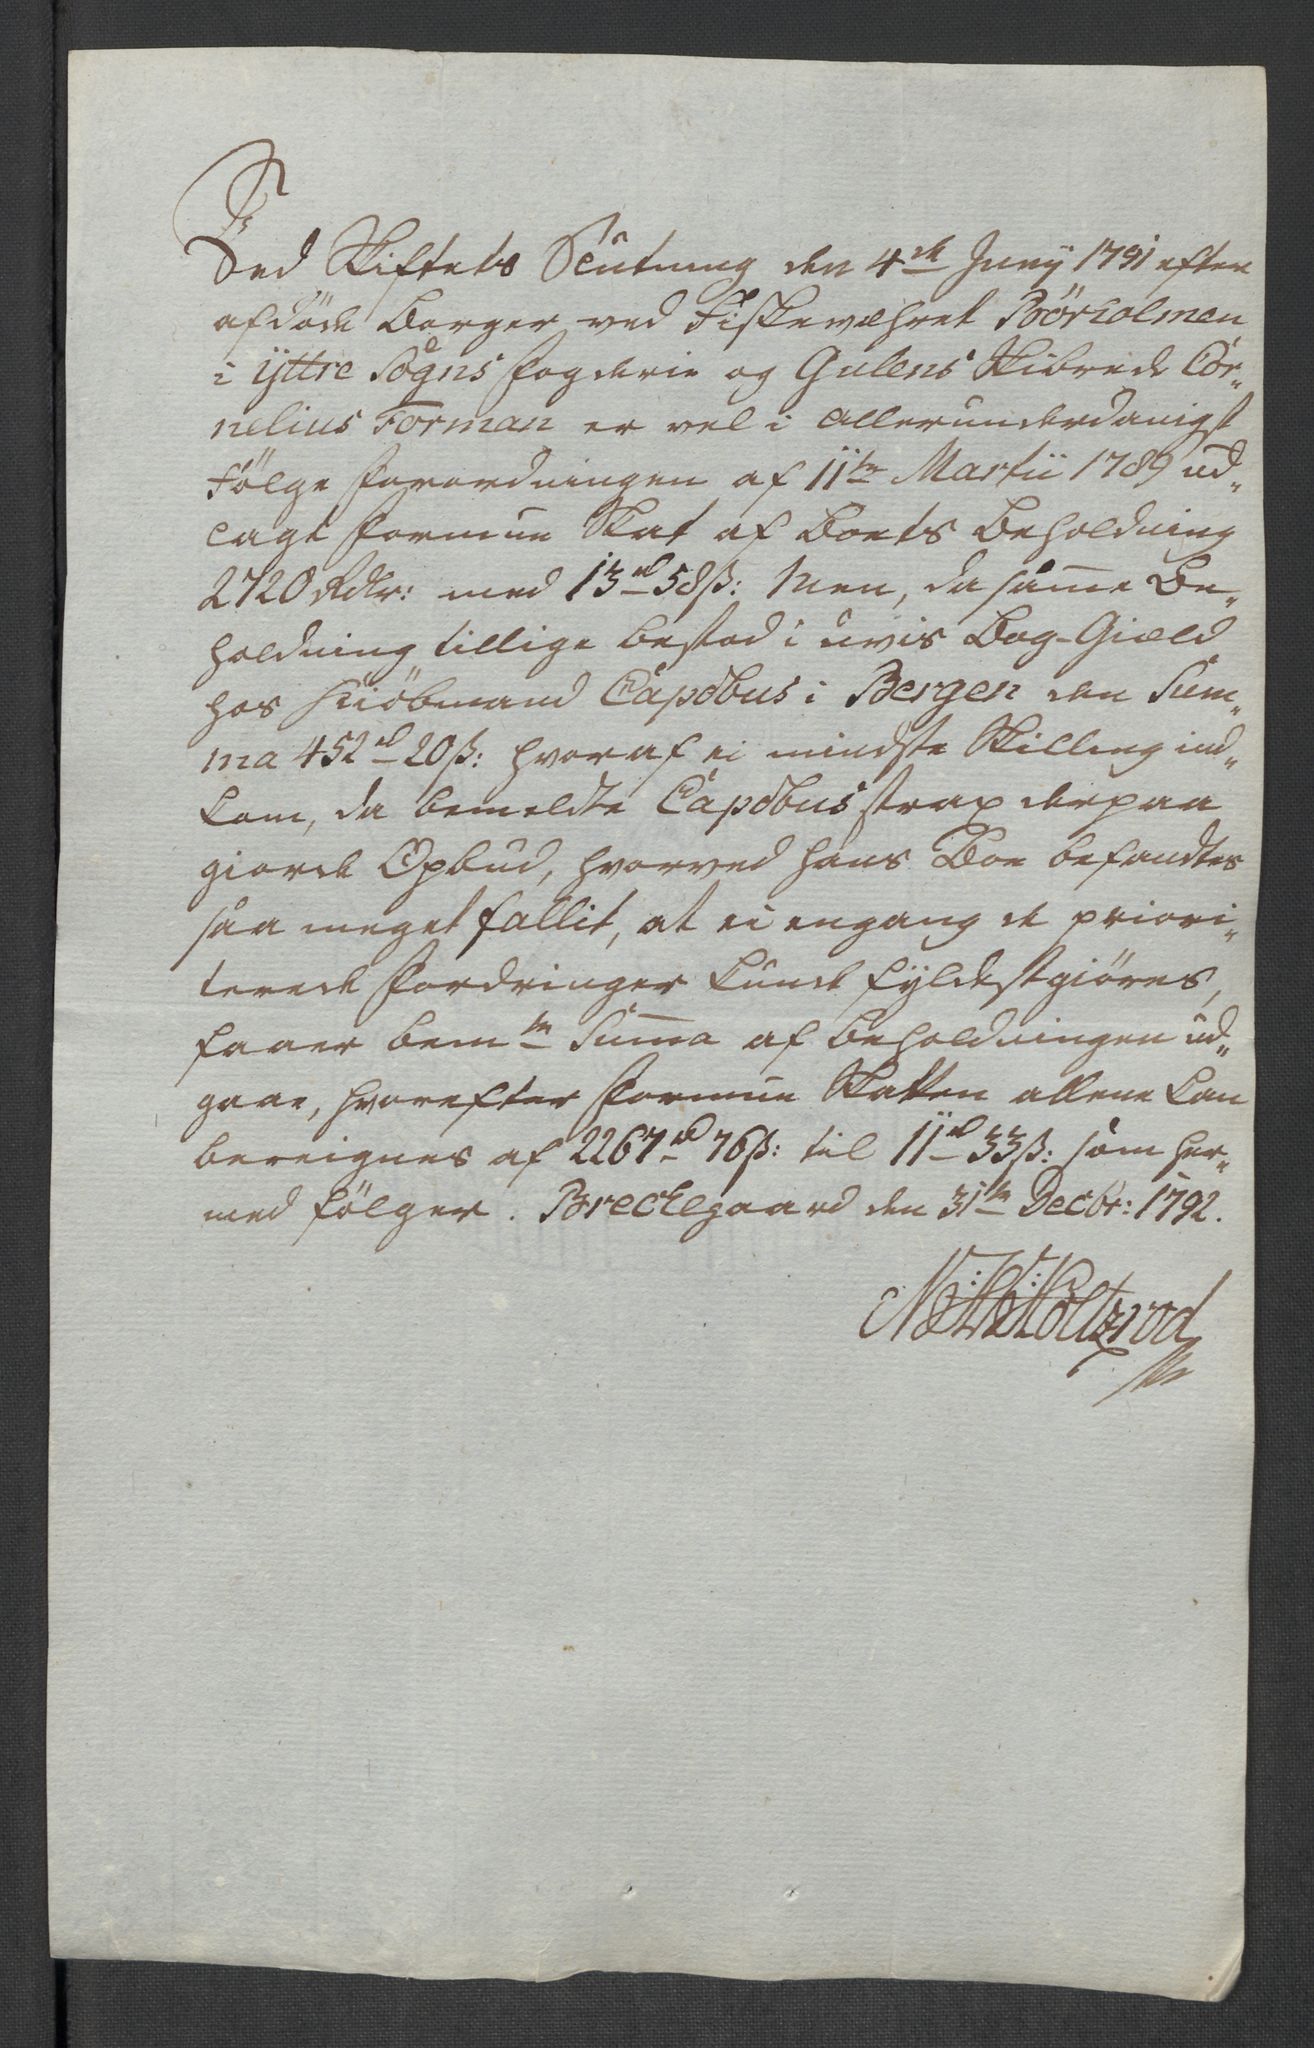 Ved Skiftets Slutning den 4de Junij 1791 efter
afdöde Borger ved Fiskeværhret Börholmen
i Yttre Sogns Fogderie og Gulens Skibrede Cor„
nelius Forman er vel i allerunderdanigst
Fölge Forordningen af 11te Martii 1789 ud„
lagt Formue Skat af Boets Beholdning
2720 Rdlr: med 13rd 58ß: Men, da samme Be„
holdning tillige bestod i uvis Bog-Giæld
hos Kiöbmand Capobus i Bergen den Sum„
ma 452rd 20ß: hvoraf ei mindste Skilling ind„
kom, da bemeldte Capobus strax derpaa
giorde Opbud, hvorved hans Boe befandtes
saa meget fallit, at ei engang de priori„
terede Fordringer kunde fyldestgiöres,
faaer bemte Summa af Beholdningen ud„
gaae, hvorefter Formue Skatten allene kan
bereignes af 2267rd 76ß: til 11rd 33ß: som her„
med fölger. Breckegaard den 31te Decbr: 1792.
Holtzrod